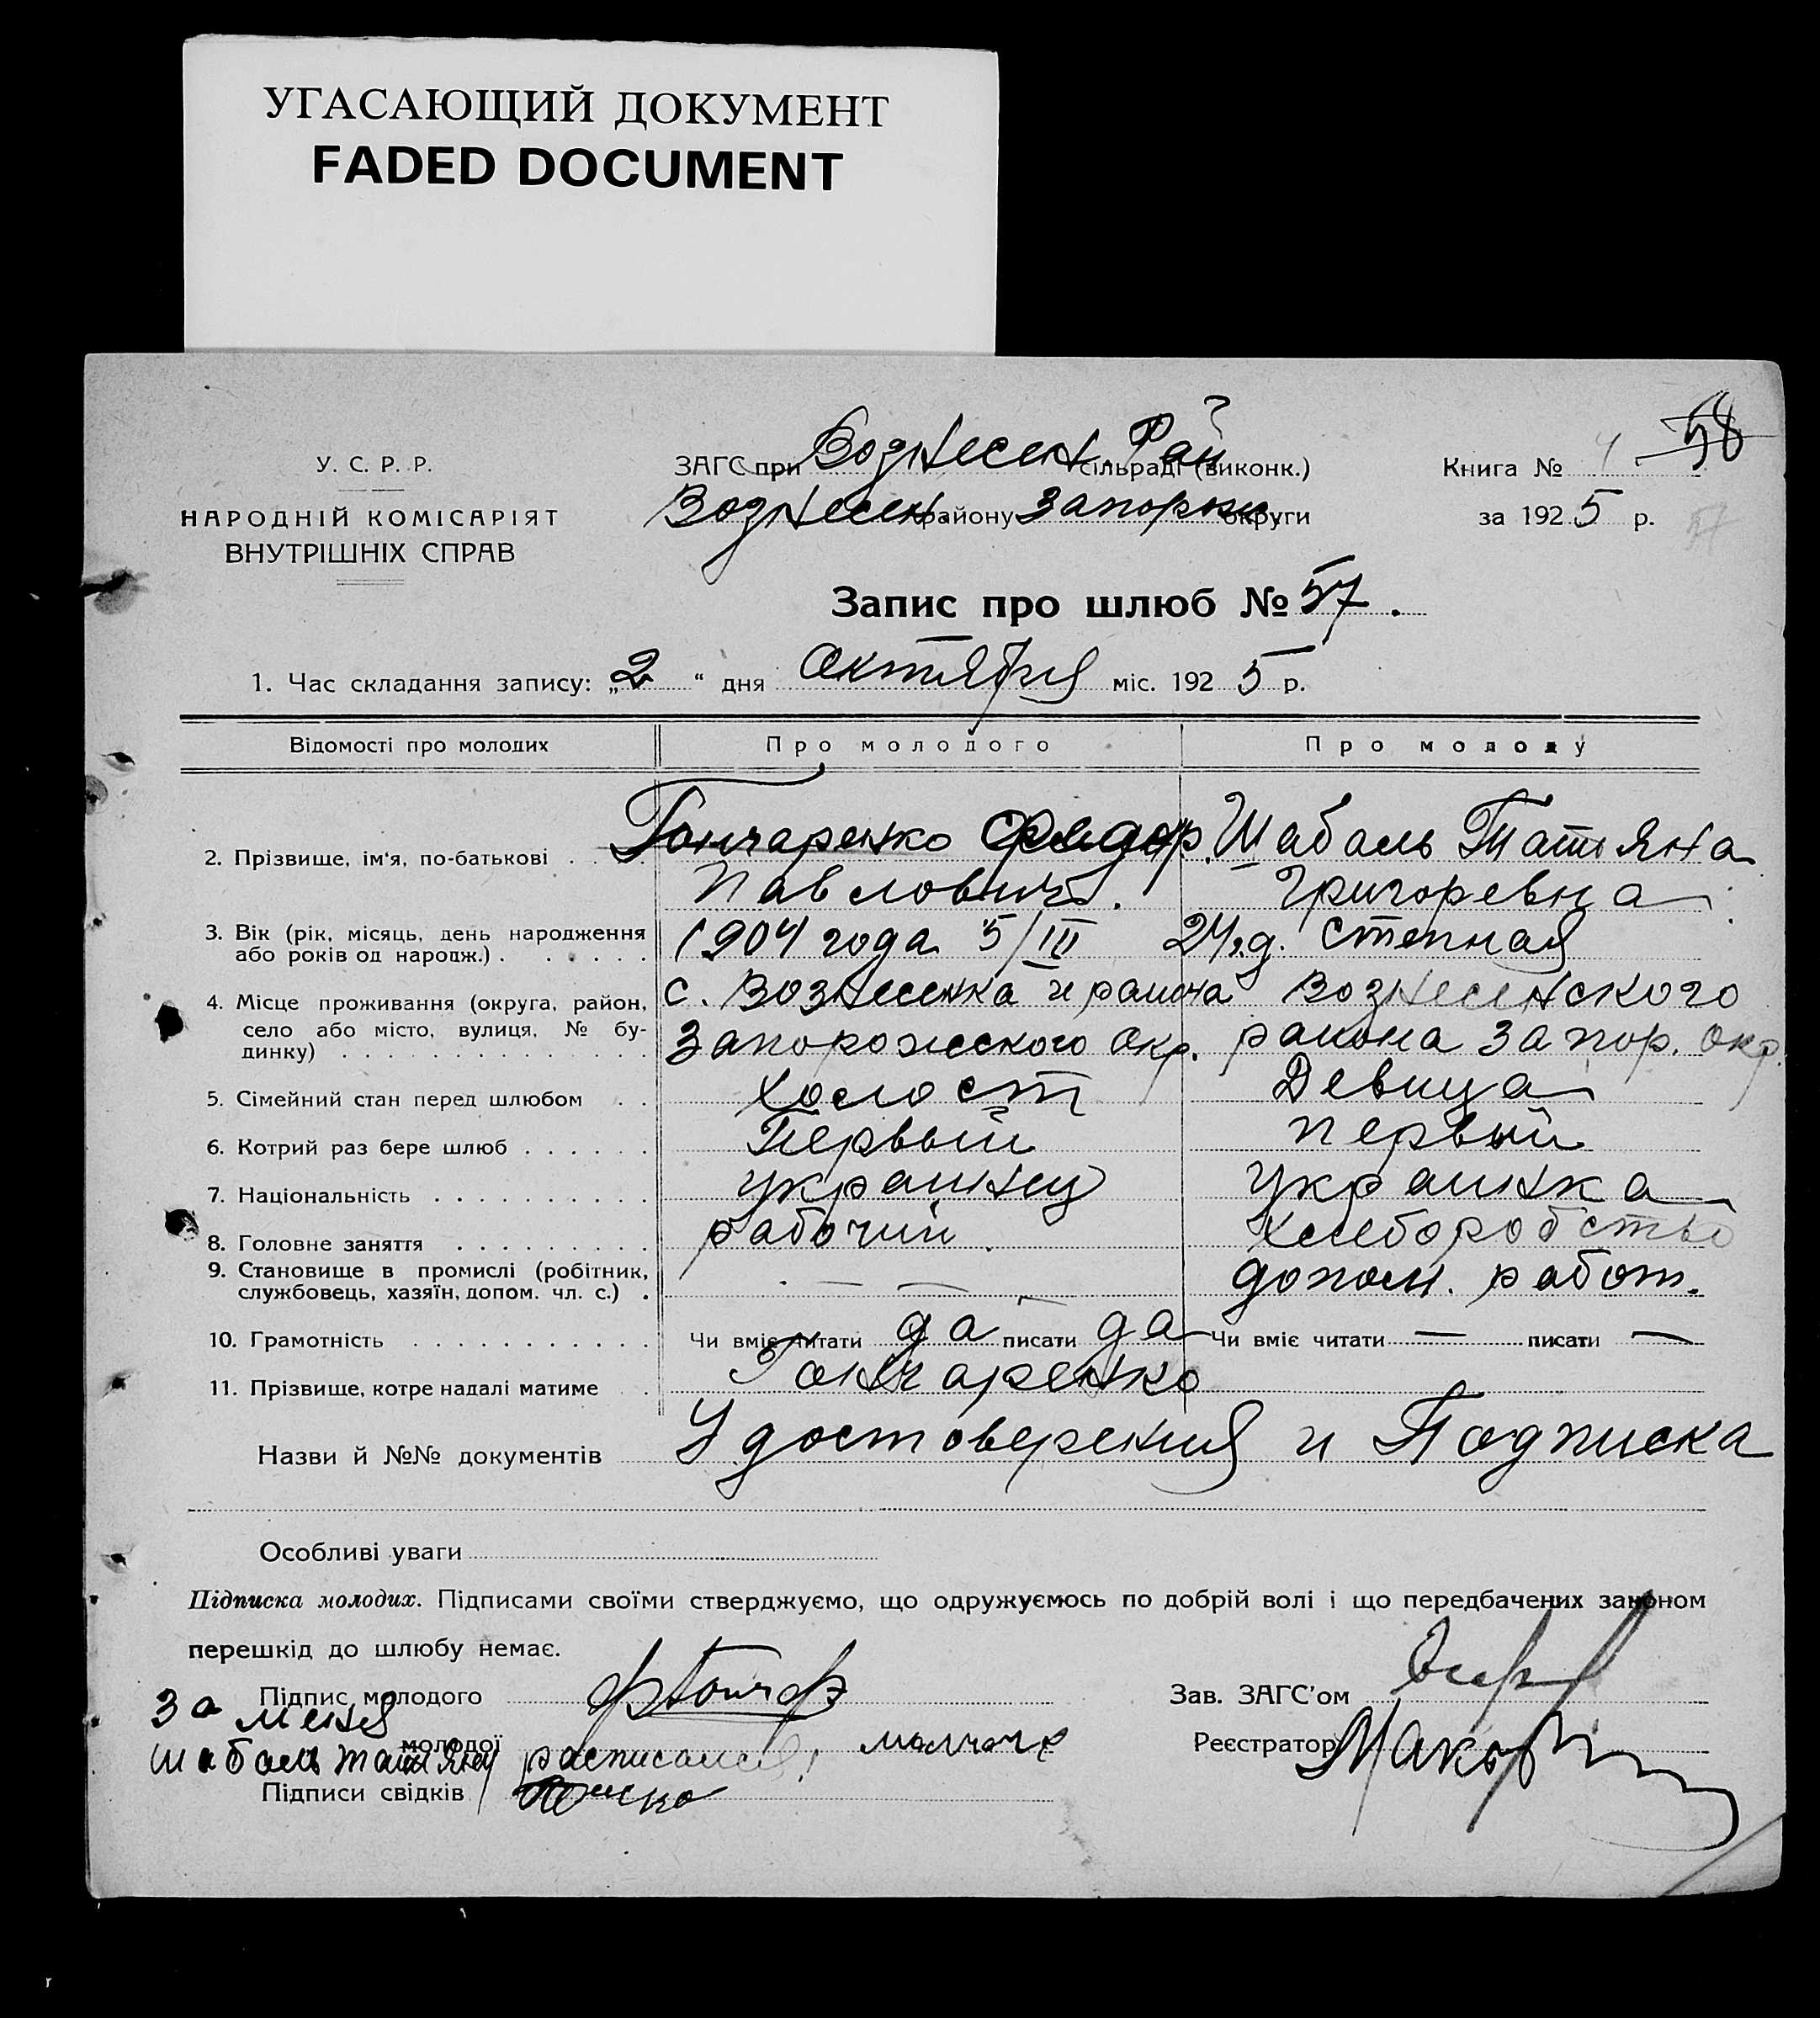 УГАСАЮЩИЙ ДОКУМЕНТ
FADED DOCUMENT
У. С. Р. Р.
НАРОДНІЙ КОМІСАРІЯТ
ВНУТРІШНІХ СПРАВ
ЗАГС при Вознесен. Рай сільраді (виконк.)
Вознесен. району Запорож. округи
Книга № 4 58
за 1925 р. 57
Запис про шлюб № 57.
1. Час складання запису: „2“ дня Октября міс. 1925 р.
Відомості про молодих Про молодого Про молоду
2. Прізвище, ім'я, по-батькові Гончаренко Федор. Шабаль Татьяна
Павлович. Григоревна
3. Вік (рік, місяць, день народження
або років од народж.) 1904 года 5/III 24 г.д. Степная
4. Місце проживання (округа, район, с. Вознесенка и района Вознесенского
село або місто, вулиця, № бу-
динку) Запорожского окр. района Запор. окр.
5. Сімейний стан перед шлюбом Холост Девица
6. Котрий раз бере шлюб Первый Первый
7. Національність украинец украинка
8. Головне заняття рабочий. хлеборобство
9. Становище в промислі (робітник,
службовець, хазяїн, допом. чл. с.) — — — допом. работ.
10. Грамотність Чи вміє читати да писати да Чи вміє читати — писати —
11. Прізвище, котре надалі матиме Гончаренко
Назви й №№ документів Удостоверения и Подписка
Особливі уваги
Підписка молодих. Підписами своїми стверджуємо, що одружуємось по добрій волі і що передбачених законом
перешкід до шлюбу немає.
Підпис молодого ФГончар Зав. ЗАГС'ом
За меня
молодої Реєстратор Макар
Шабаль Татьяну расписался
Підписи свідків